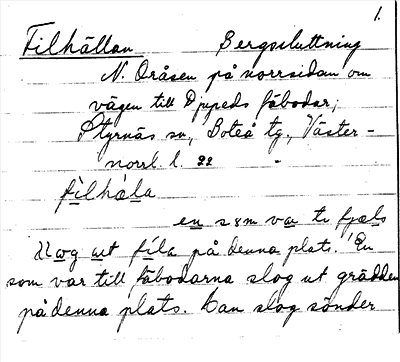 1.
Filhällan Bergssluttning
N. Oråsen på norrsidan om
vägen till Djupeds fäbodar;
Styrnäs sn, Boteå tg., Väster-
norrl. l.
filhäla
en sum var te fjæls
slog ut fila på denna plats. "En
som var till fäbodarna slog ut grädden
på denna plats. Han slog sönder